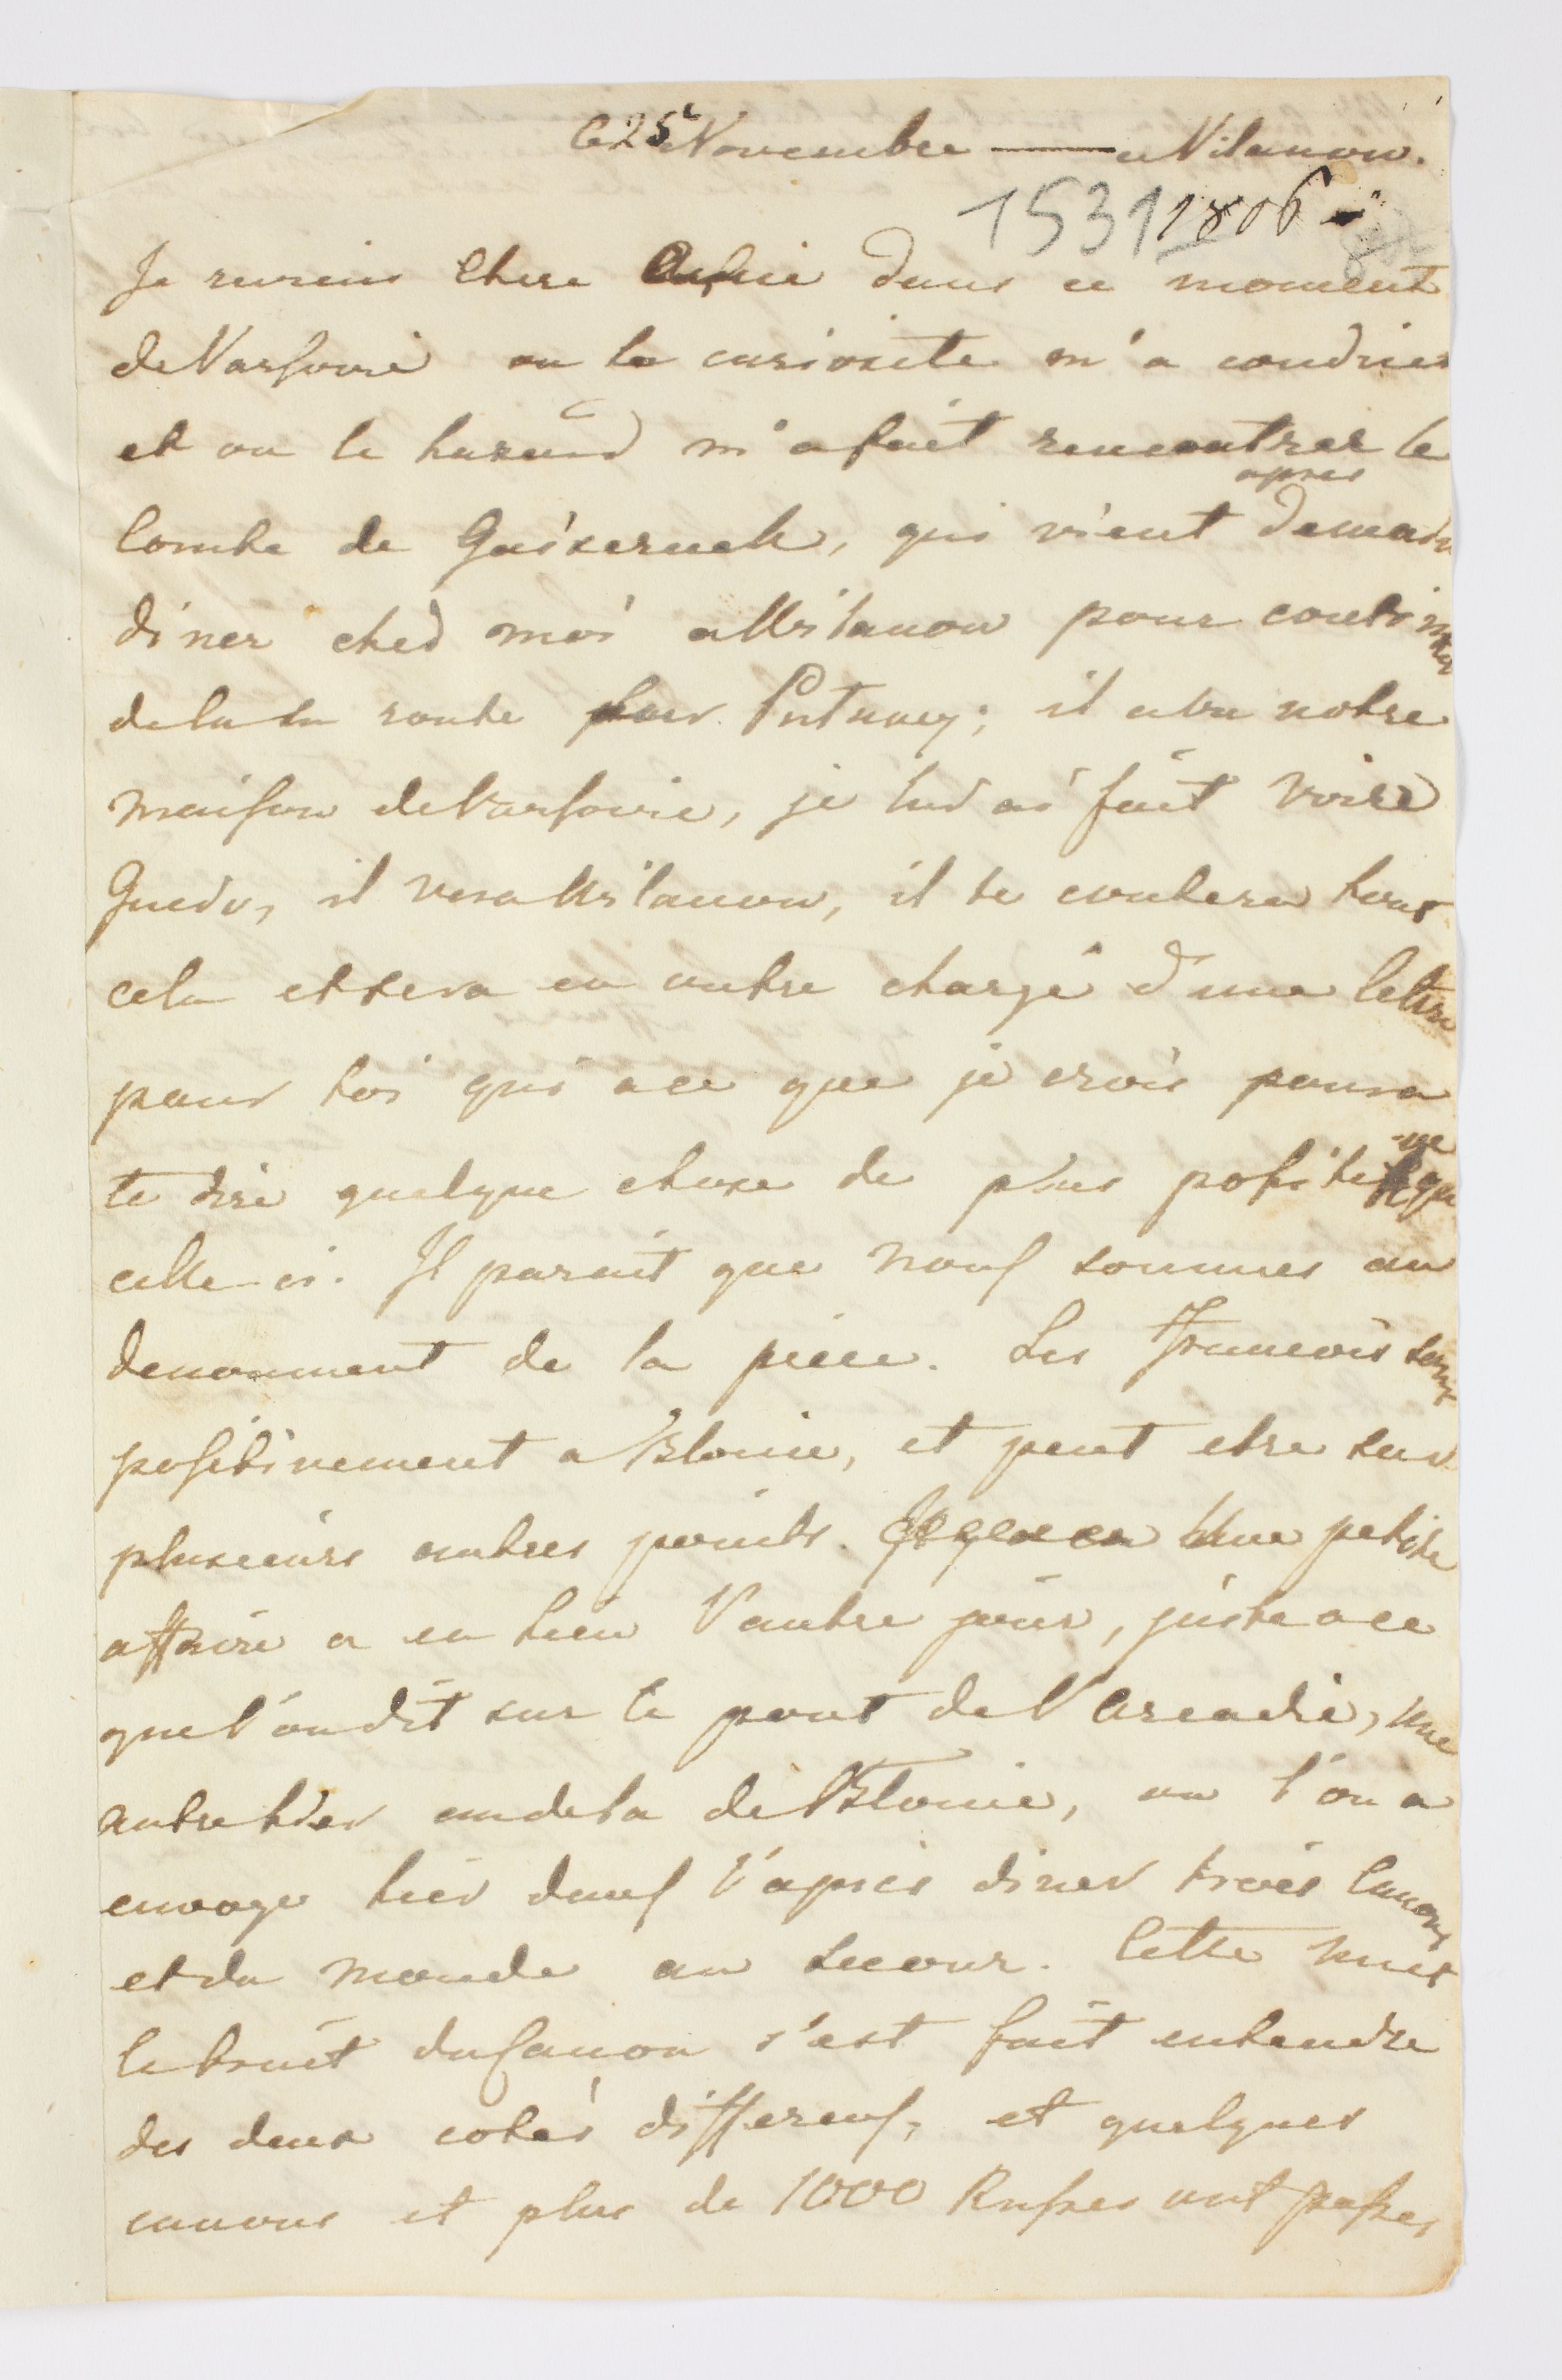 le 25 Novembre —— a Vilanow.
1531 1806
Je reviens Chere Amie dans ce moment
de Varsovie ou la curiosite m'a conduit
et ou le hazard m'a fait rencontrer le
Comte de Gaisruck, qui vient apres demain
diner ched moi a Wilanow pour continuer
dela sa route pour Putawy; il a vu notre
maison de Varsovie, je lui ai fait voire
Gucin, il vera Wilanow, il te contera tout
cela et sera en outre chargé d'une lettre
pour toi qui a ce que je crois poura
te dire quelque chose de plus positive que
celle-ci. Il parait que nous sommes au
denoument de la piece. Les Francois sont
positivement a Blonie, et peut etre sur
plusieurs autres points. Une petite
affaire a eu lieu l'autre jour, juste a ce
que l'on dit sur le pont de l'Arcadie, une
autre hier audela de Blonie, ou l'on a
envoye hier dans l'apres diner trois Canons
et du monde au secour. Cette nuit
le bruit du Canon s'est fait entendre
des deux cotés differens, et quelques
canons et plus de 1000 Russes ont passes